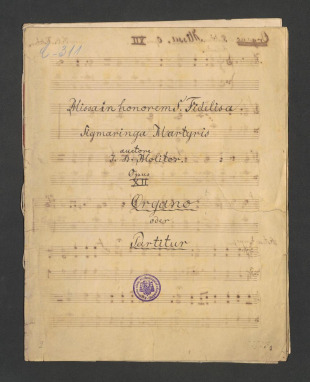 C-311
XII
Missa in honorem St Fidelis a
Sigmaringa Martyris
auctore
J. B. Molitor.
Opus
XII
Organo:
oder
Partitur.